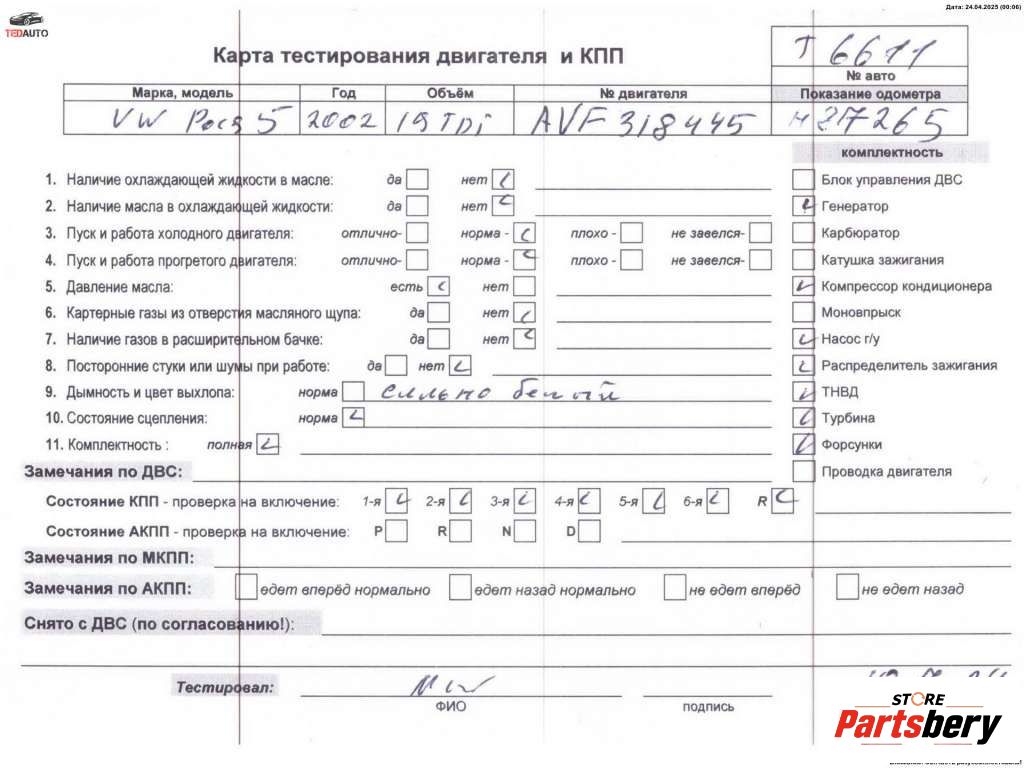 Дата: 24.04.2025 (00:06)
TEDAUTO
Карта тестирования двигателя и КПП
Т 6611
№ авто
Марка, модель Год Объём № двигателя Показание одометра
VW 5 2002 19 TDi AVF 318445 н 217265
комплектность
1. Наличие охлаждающей жидкости в масле: да нет Блок управления ДВС
2. Наличие масла в охлаждающей жидкости: да нет Генератор
3. Пуск и работа холодного двигателя: отлично- норма - плохо - не завелся- Карбюратор
4. Пуск и работа прогретого двигателя: отлично- норма - плохо - не завелся- Катушка зажигания
5. Давление масла: есть нет Компрессор кондиционера
6. Картерные газы из отверстия масляного щупа: да нет Моновпрыск
7. Наличие газов в расширительном бачке: да нет Насос г/у
8. Посторонние стуки или шумы при работе: да нет Распределитель зажигания
9. Дымность и цвет выхлопа: норма сильно белый ТНВД
10. Состояние сцепления: норма Турбина
11. Комплектность : полная Форсунки
Замечания по ДВС: Проводка двигателя
Состояние КПП - проверка на включение: 1-я 2-я 3-я 4-я 5-я 6-я R
Состояние АКПП - проверка на включение: P R N D
Замечания по МКПП:
Замечания по АКПП: едет вперёд нормально едет назад нормально не едет вперёд не едет назад
Снято с ДВС (по согласованию!):
Тестировал:
ФИО подпись
STORE
Partsbery